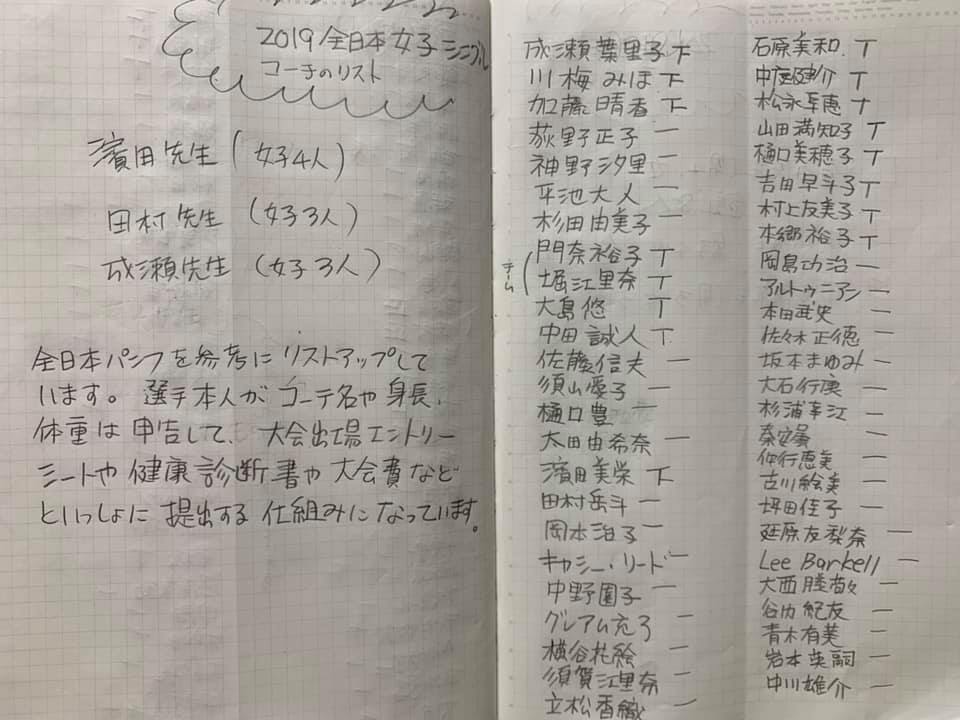 2019 全日本女子シングル
コーチのリスト
濱田先生(女子4人)
田村先生(女子3人)
成瀬先生(女子3人)
全日本パンフを参考にリストアップして
います。選手本人がコーチ名や身長、
体重は申告して、大会出場エントリー
シートや健康診断書や大会費など
といっしょに提出する仕組みになっています。
成瀬葉里子 下
川梅みほ 下
加藤晴香 下
荻野正子 一
神野汐里 一
平池大人 一
杉田由美子 一
チーム
門奈裕子 T
堀江里奈 T
大島悠 T
中田誠人 T
佐藤信夫 一
須山愛子 一
樋口豊 一
太田由希奈 一
濱田美栄 下
田村岳斗 一
岡本治子 一
キャシー・リード 一
中野園子 一
グレアム充子 一
横谷花絵 一
須賀江里奈 一
立松香織
石原美和. T
中庭健介 T
松永幸恵 T
山田満知子 T
樋口美穂子 T
吉田早斗子 T
村上友美子 T
本郷裕子 T
岡島功治 一
アルトゥニアン 一
本田武史 一
佐々木正徳 一
坂本まゆみ 一
大石行康 一
杉浦幸江 一
秦安曇 一
仰行恵美 一
古川絵美 一
坪田佳子 一
廷原友梨奈 一
Lee Barkell 一
大西勝敬 一
谷内紀友 一
青木有美 一
岩本英嗣 一
中川雄介 一